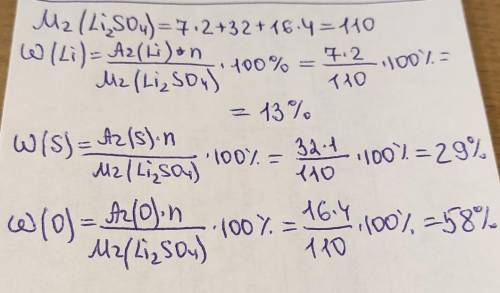 Mr(Li₂SO₄)=7·2+32+16·4=110
ω(Li)=Ar(Li)·n/Mr(Li₂SO₄)·100%=7·2/110·100%=
=13%
ω(S)=Ar(S)·n/Mr(Li₂SO₄)·100%=32·1/110·100%=29%
ω(O)=Ar(O)·n/Mr(Li₂SO₄)·100%=16·4/110·100%=58%